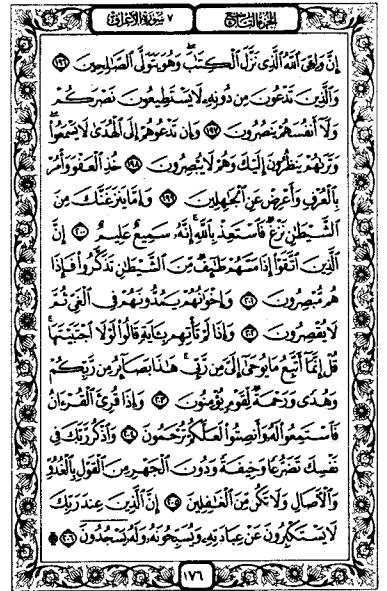 الجزء التاسع ٧ سورة الأعراف
إِنَّ وَلِـِّۧيَ ٱللَّهُ ٱلَّذِى نَزَّلَ ٱلْكِتَٰبَ ۖ وَهُوَ يَتَوَلَّى ٱلصَّٰلِحِينَ ١٩٦
وَٱلَّذِينَ تَدْعُونَ مِن دُونِهِۦ لَا يَسْتَطِيعُونَ نَصْرَكُمْ
وَلَآ أَنفُسَهُمْ يَنصُرُونَ ١٩٧ وَإِن تَدْعُوهُمْ إِلَى ٱلْهُدَىٰ لَا يَسْمَعُوا۟ ۖ
وَتَرَىٰهُمْ يَنظُرُونَ إِلَيْكَ وَهُمْ لَا يُبْصِرُونَ ١٩٨ خُذِ ٱلْعَفْوَ وَأْمُرْ
بِٱلْعُرْفِ وَأَعْرِضْ عَنِ ٱلْجَٰهِلِينَ ١٩٩ وَإِمَّا يَنزَغَنَّكَ مِنَ
ٱلشَّيْطَٰنِ نَزْغٌ فَٱسْتَعِذْ بِٱللَّهِ ۚ إِنَّهُۥ سَمِيعٌ عَلِيمٌ ٢٠٠ إِنَّ
ٱلَّذِينَ ٱتَّقَوْا۟ إِذَا مَسَّهُمْ طَٰٓئِفٌ مِّنَ ٱلشَّيْطَٰنِ تَذَكَّرُوا۟ فَإِذَا
هُم مُّبْصِرُونَ ٢٠١ وَإِخْوَٰنُهُمْ يَمُدُّونَهُمْ فِى ٱلْغَىِّ ثُمَّ
لَا يُقْصِرُونَ ٢٠٢ وَإِذَا لَمْ تَأْتِهِم بِـَٔايَةٍ قَالُوا۟ لَوْلَا ٱجْتَبَيْتَهَا ۚ
قُلْ إِنَّمَآ أَتَّبِعُ مَا يُوحَىٰٓ إِلَىَّ مِن رَّبِّى ۚ هَٰذَا بَصَآئِرُ مِن رَّبِّكُمْ
وَهُدًى وَرَحْمَةٌ لِّقَوْمٍ يُؤْمِنُونَ ٢٠٣ وَإِذَا قُرِئَ ٱلْقُرْءَانُ
فَٱسْتَمِعُوا۟ لَهُۥ وَأَنصِتُوا۟ لَعَلَّكُمْ تُرْحَمُونَ ٢٠٤ وَٱذْكُر رَّبَّكَ فِى
نَفْسِكَ تَضَرُّعًا وَخِيفَةً وَدُونَ ٱلْجَهْرِ مِنَ ٱلْقَوْلِ بِٱلْغُدُوِّ
وَٱلْءَاصَالِ وَلَا تَكُن مِّنَ ٱلْغَٰفِلِينَ ٢٠٥ إِنَّ ٱلَّذِينَ عِندَ رَبِّكَ
لَا يَسْتَكْبِرُونَ عَنْ عِبَادَتِهِۦ وَيُسَبِّحُونَهُۥ وَلَهُۥ يَسْجُدُونَ ۩ ٢٠٦
١٧٦